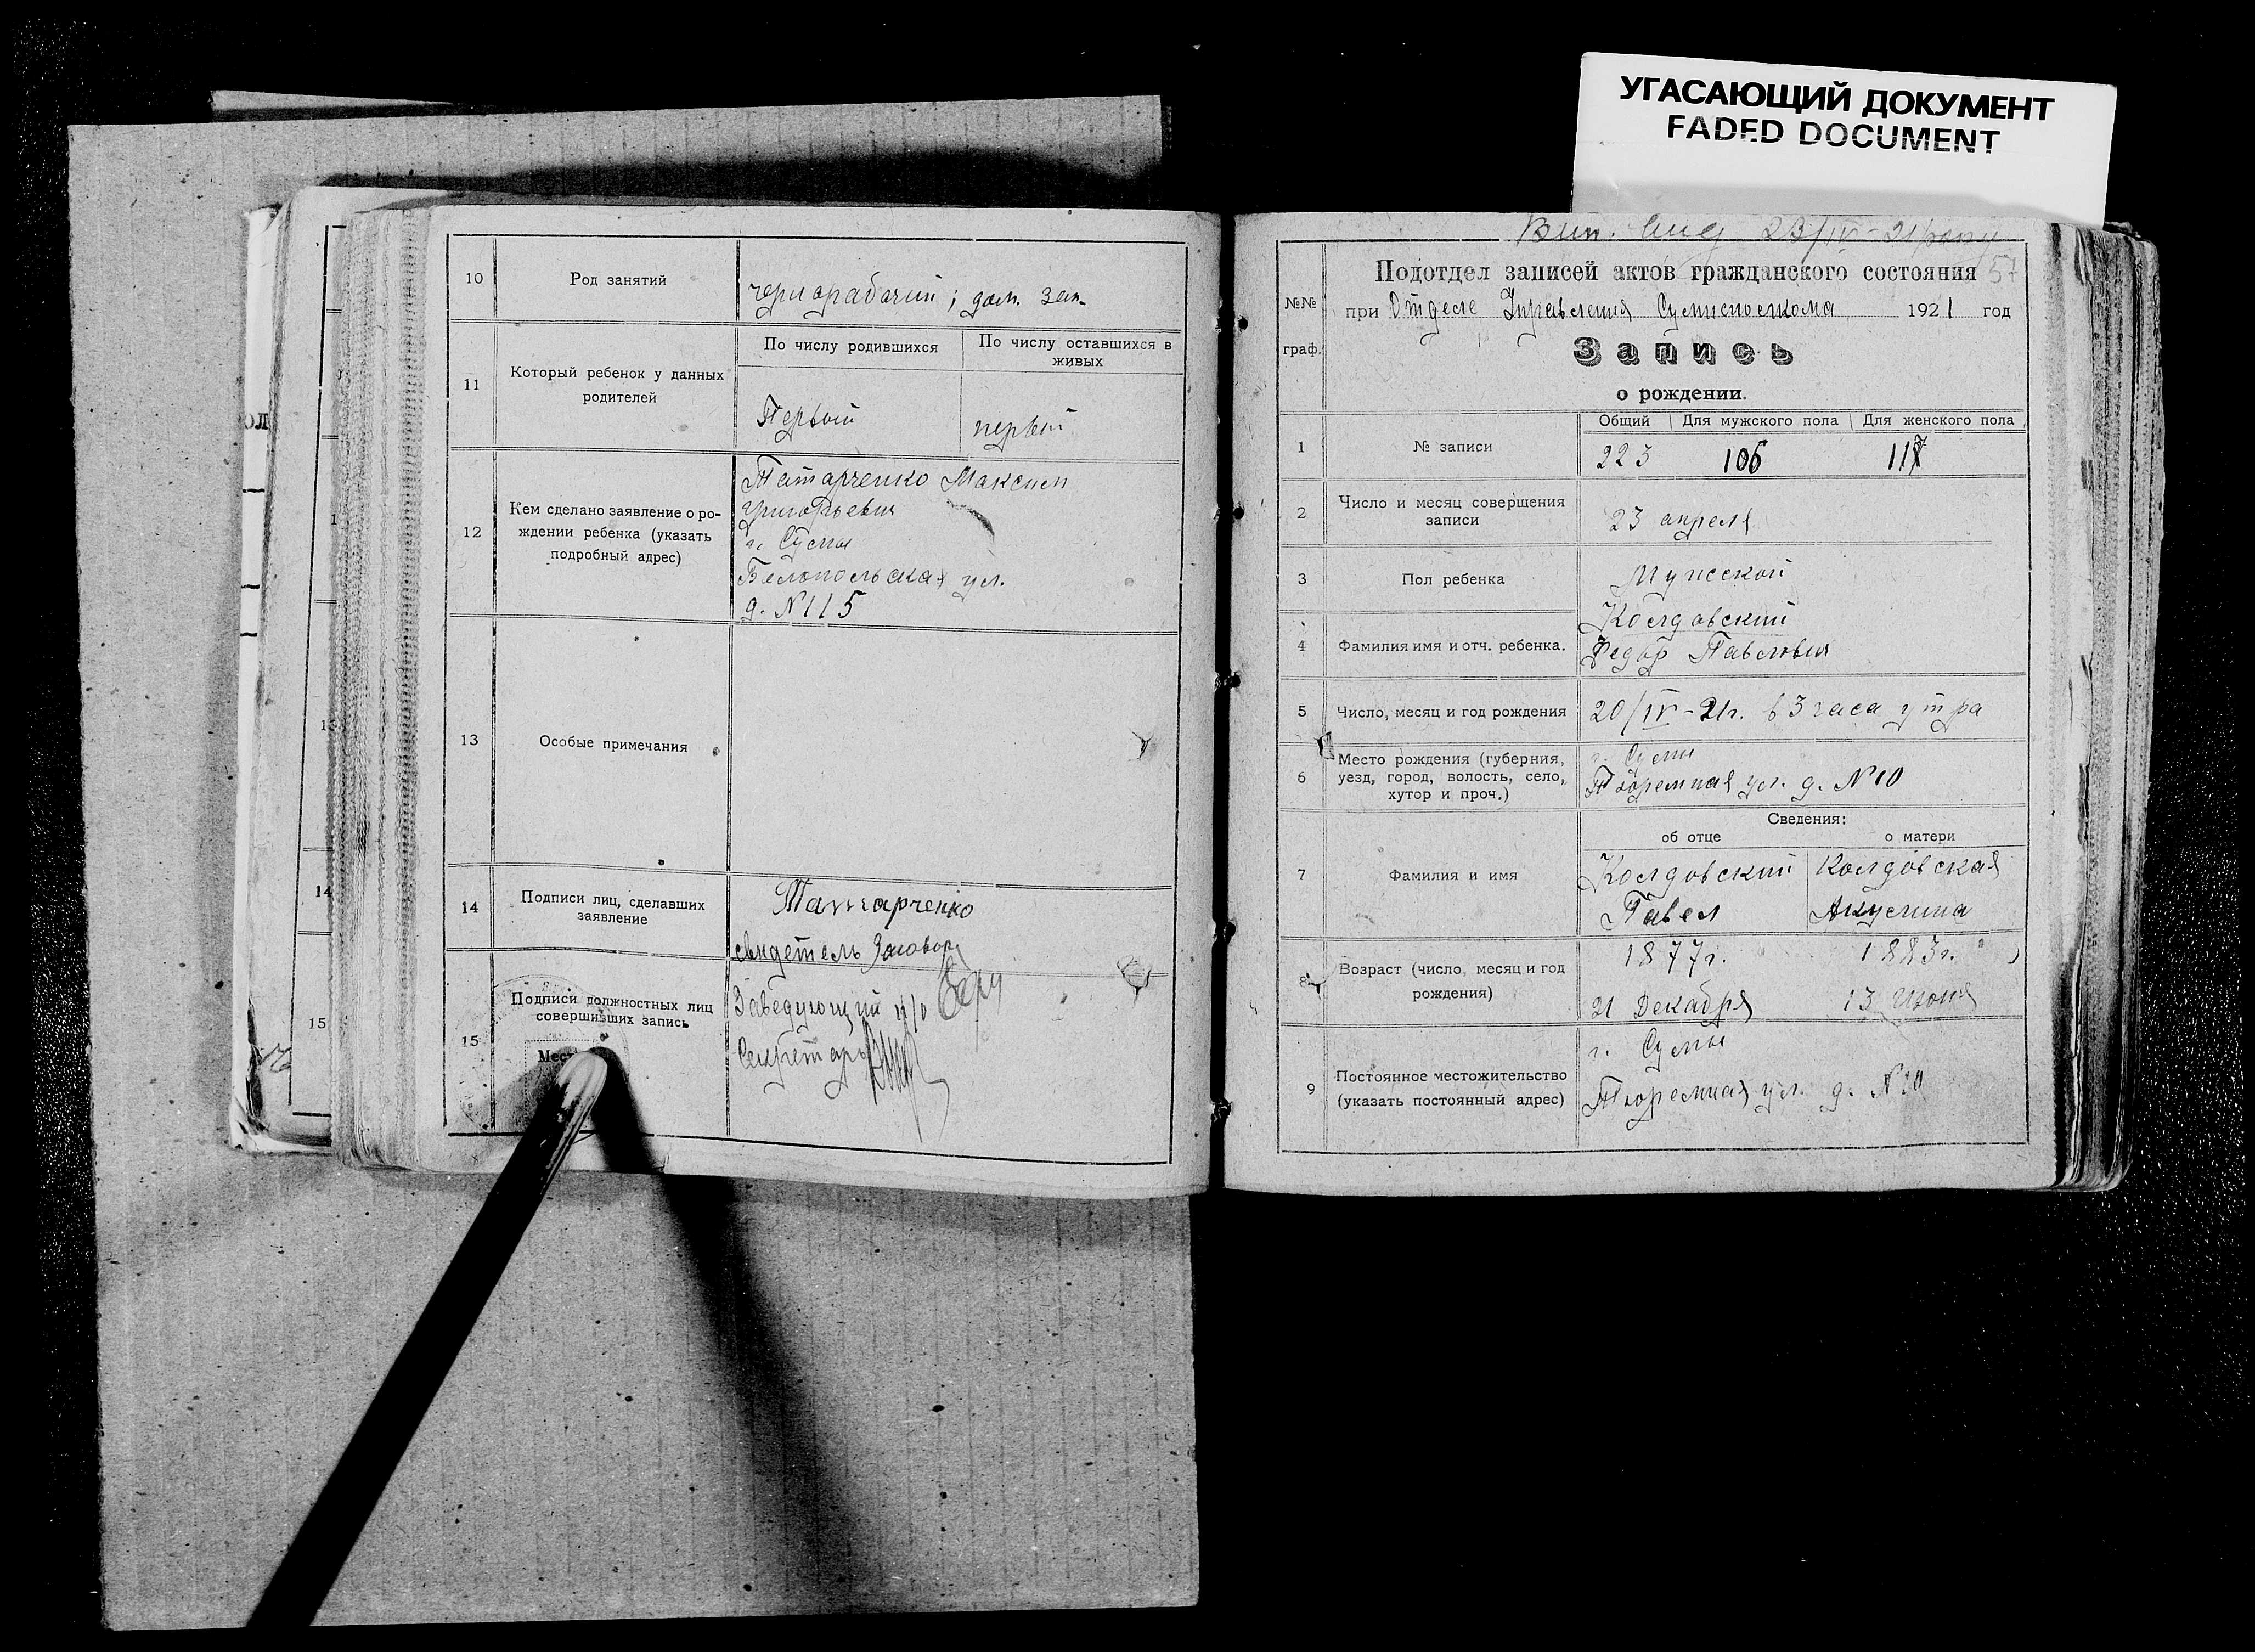 УГАСАЮЩИЙ ДОКУМЕНТ
FADED DOCUMENT
10 Род занятий чернорабочий; дом. зан.
11 Который ребенок у данных родителей
По числу родившихся
По числу оставшихся в живых
Первый
первый
12 Кем сделано заявление о ро-
ждении ребенка (указать
подробный адрес)
Татарченко Максим
Григорьевич
г. Сумы
Белопольская ул.
д. N115
13 Особые примечания
14 Подписи лиц, сделавших
заявление
Татарченко
свидетель
15 Подписи должностных лиц
совершивших запись
Заведующий п/о
Секретарь
14
15
23/IV-21
57
Подотдел записей актов гражданского состояния
№№
граф.
при Отделе Управления Сумисполкома 1921 год
Запись
о рождении.
Общий Для мужского пола Для женского пола
1 № записи 223 106 117
2 Число и месяц совершения
записи
23 апреля
3 Пол ребенка Мужской
4 Фамилия имя и отч. ребенка.
Колдовский
Федор Павлович
5 Число, месяц и год рождения 20/IV-21г. в 3 часа утра
6 Место рождения (губерния,
уезд, город, волость, село,
хутор и проч.)
г. Сумы
Тюремная ул. д. N10
Сведения:
об отце о матери
7 Фамилия и имя
Колдовский Колдовская
Павел Акулина
8 Возраст (число, месяц и год
рождения)
1877г. 1883г.
21 Декабря 13 Июня
9 Постоянное местожительство
(указать постоянный адрес)
г. Сумы
Тюремная ул. д. N10